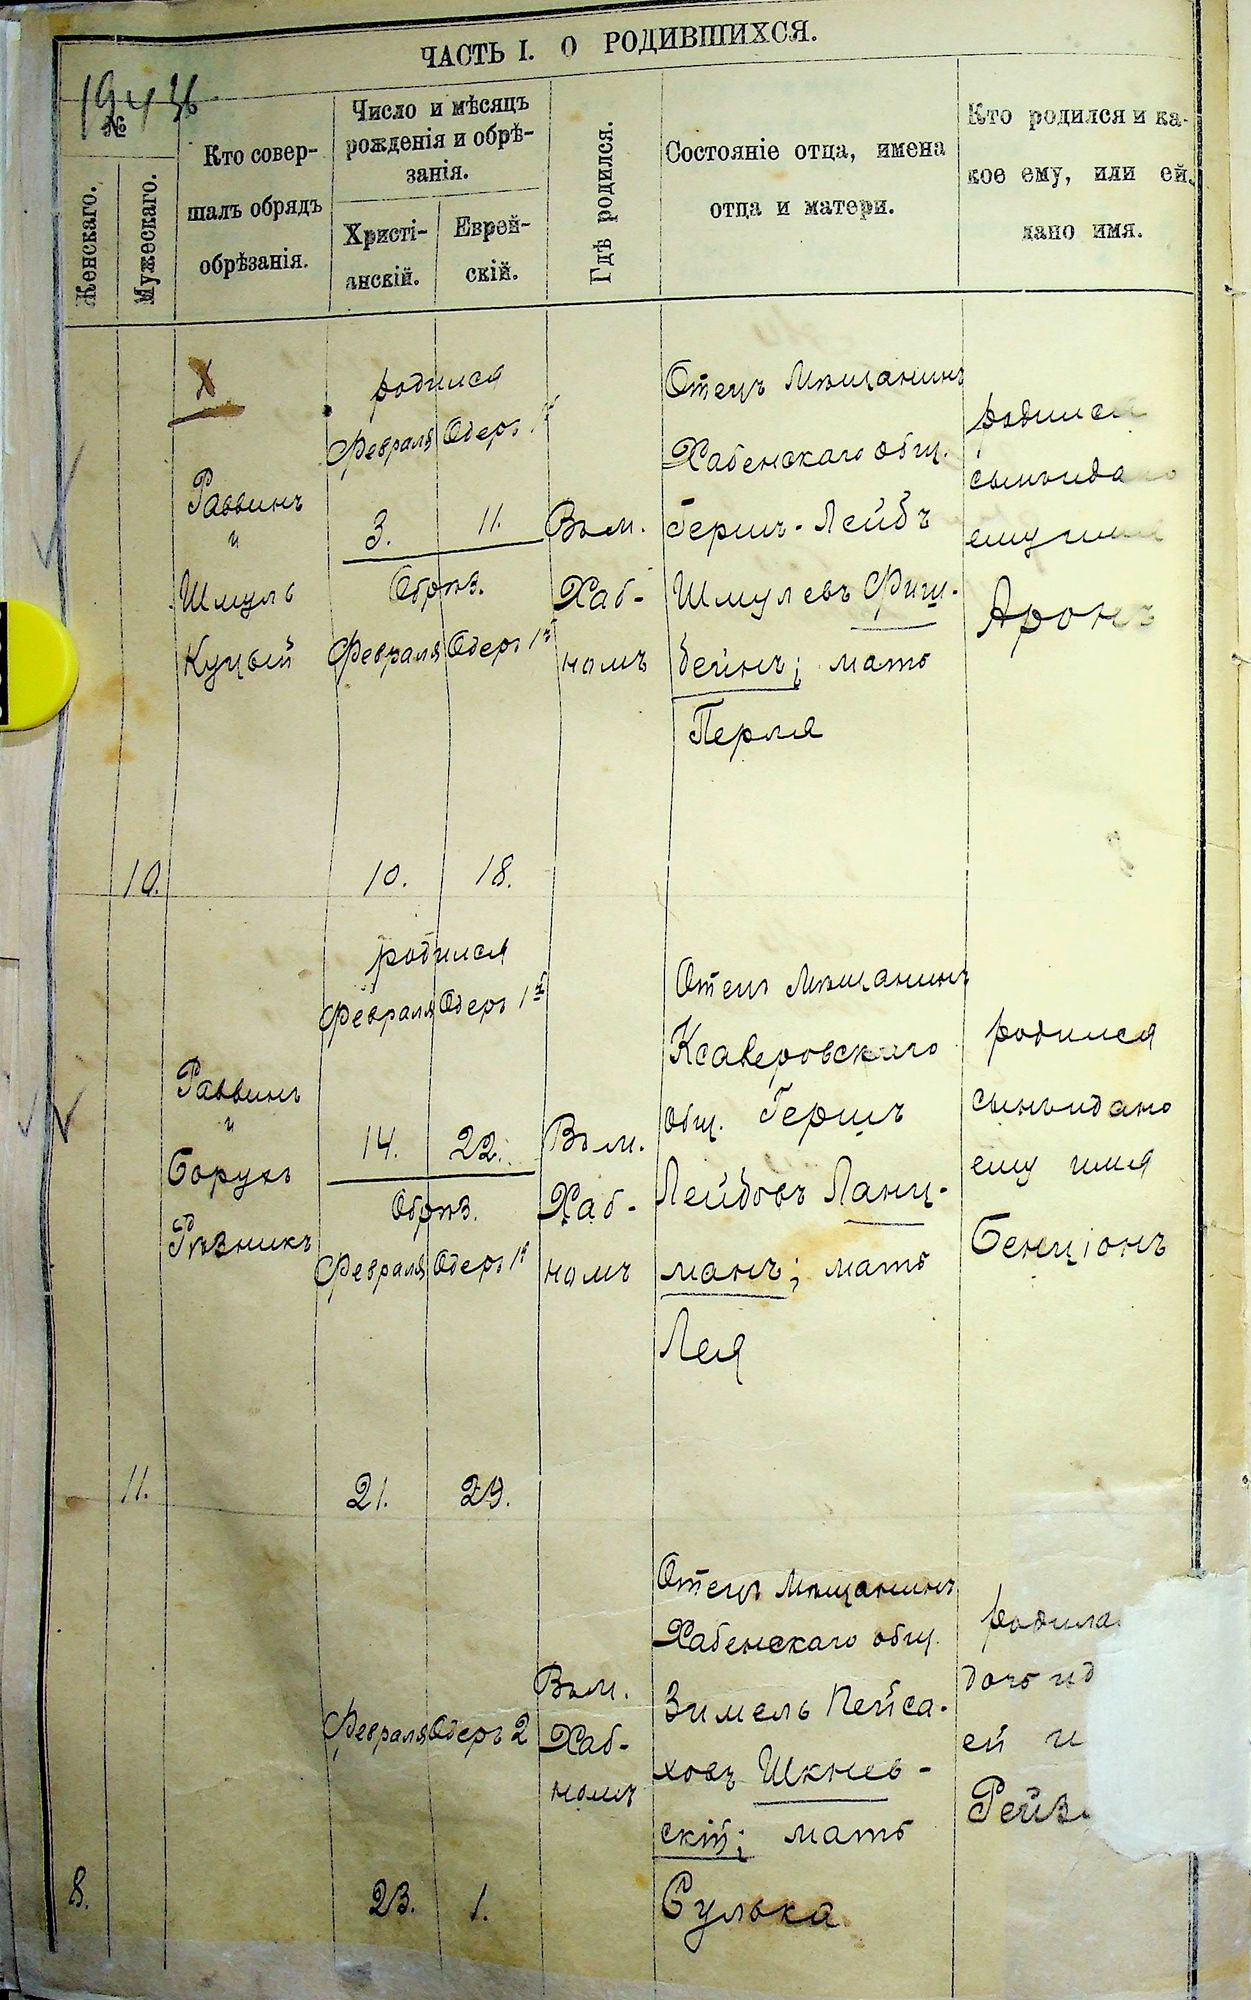 ЧАСТЬ I. О РОДИВШИХСЯ.
№
Женскаго.
Мужескаго.
Кто совер-
шалъ обрядъ
обрѣзанія.
Число и мѣсяцъ
рожденія и обрѣ-
занія.
Христі-
анскій.
Еврей-
скій.
Гдѣ родился.
Состояніе отца, имена
отца и матери.
Кто родился и ка-
кое ему, или ей,
дано имя.
10.
Раввинъ
и
Шмуль
Куцый
родился
Февраля Одеръ 1й
3. 11.
Обрѣз.
Февраля Одеръ 1й
10. 18.
Въ м.
Хаб-
номъ
Отецъ Мѣщанинъ
Хабенскаго общ.
Герш-Лейбъ
Шмулевъ Фиш-
бейнъ; мать
Перля
родился
сынъ и дано
ему имя
Аронъ
11.
Раввинъ
и
Борухъ
Рѣзникъ
родился
Февраля Одеръ 1й
14. 22.
Обрѣз.
Февраля Одеръ 1й
21. 29.
Въ м.
Хаб-
номъ
Отецъ Мѣщанинъ
Ксаверовскаго
общ. Гершъ
Лейбовъ Ланц-
манъ; мать
Лея
родился
сынъ и дано
ему имя
Бенціонъ
8.
Февраля Одеръ 2
23. 1.
Въ м.
Хаб-
номъ
Отецъ Мѣщанинъ
Хабенскаго общ.
Зимель Пейса-
ховъ Шкнев-
скій; мать
Сулька
родила
дочь и д
ей и
Рейз